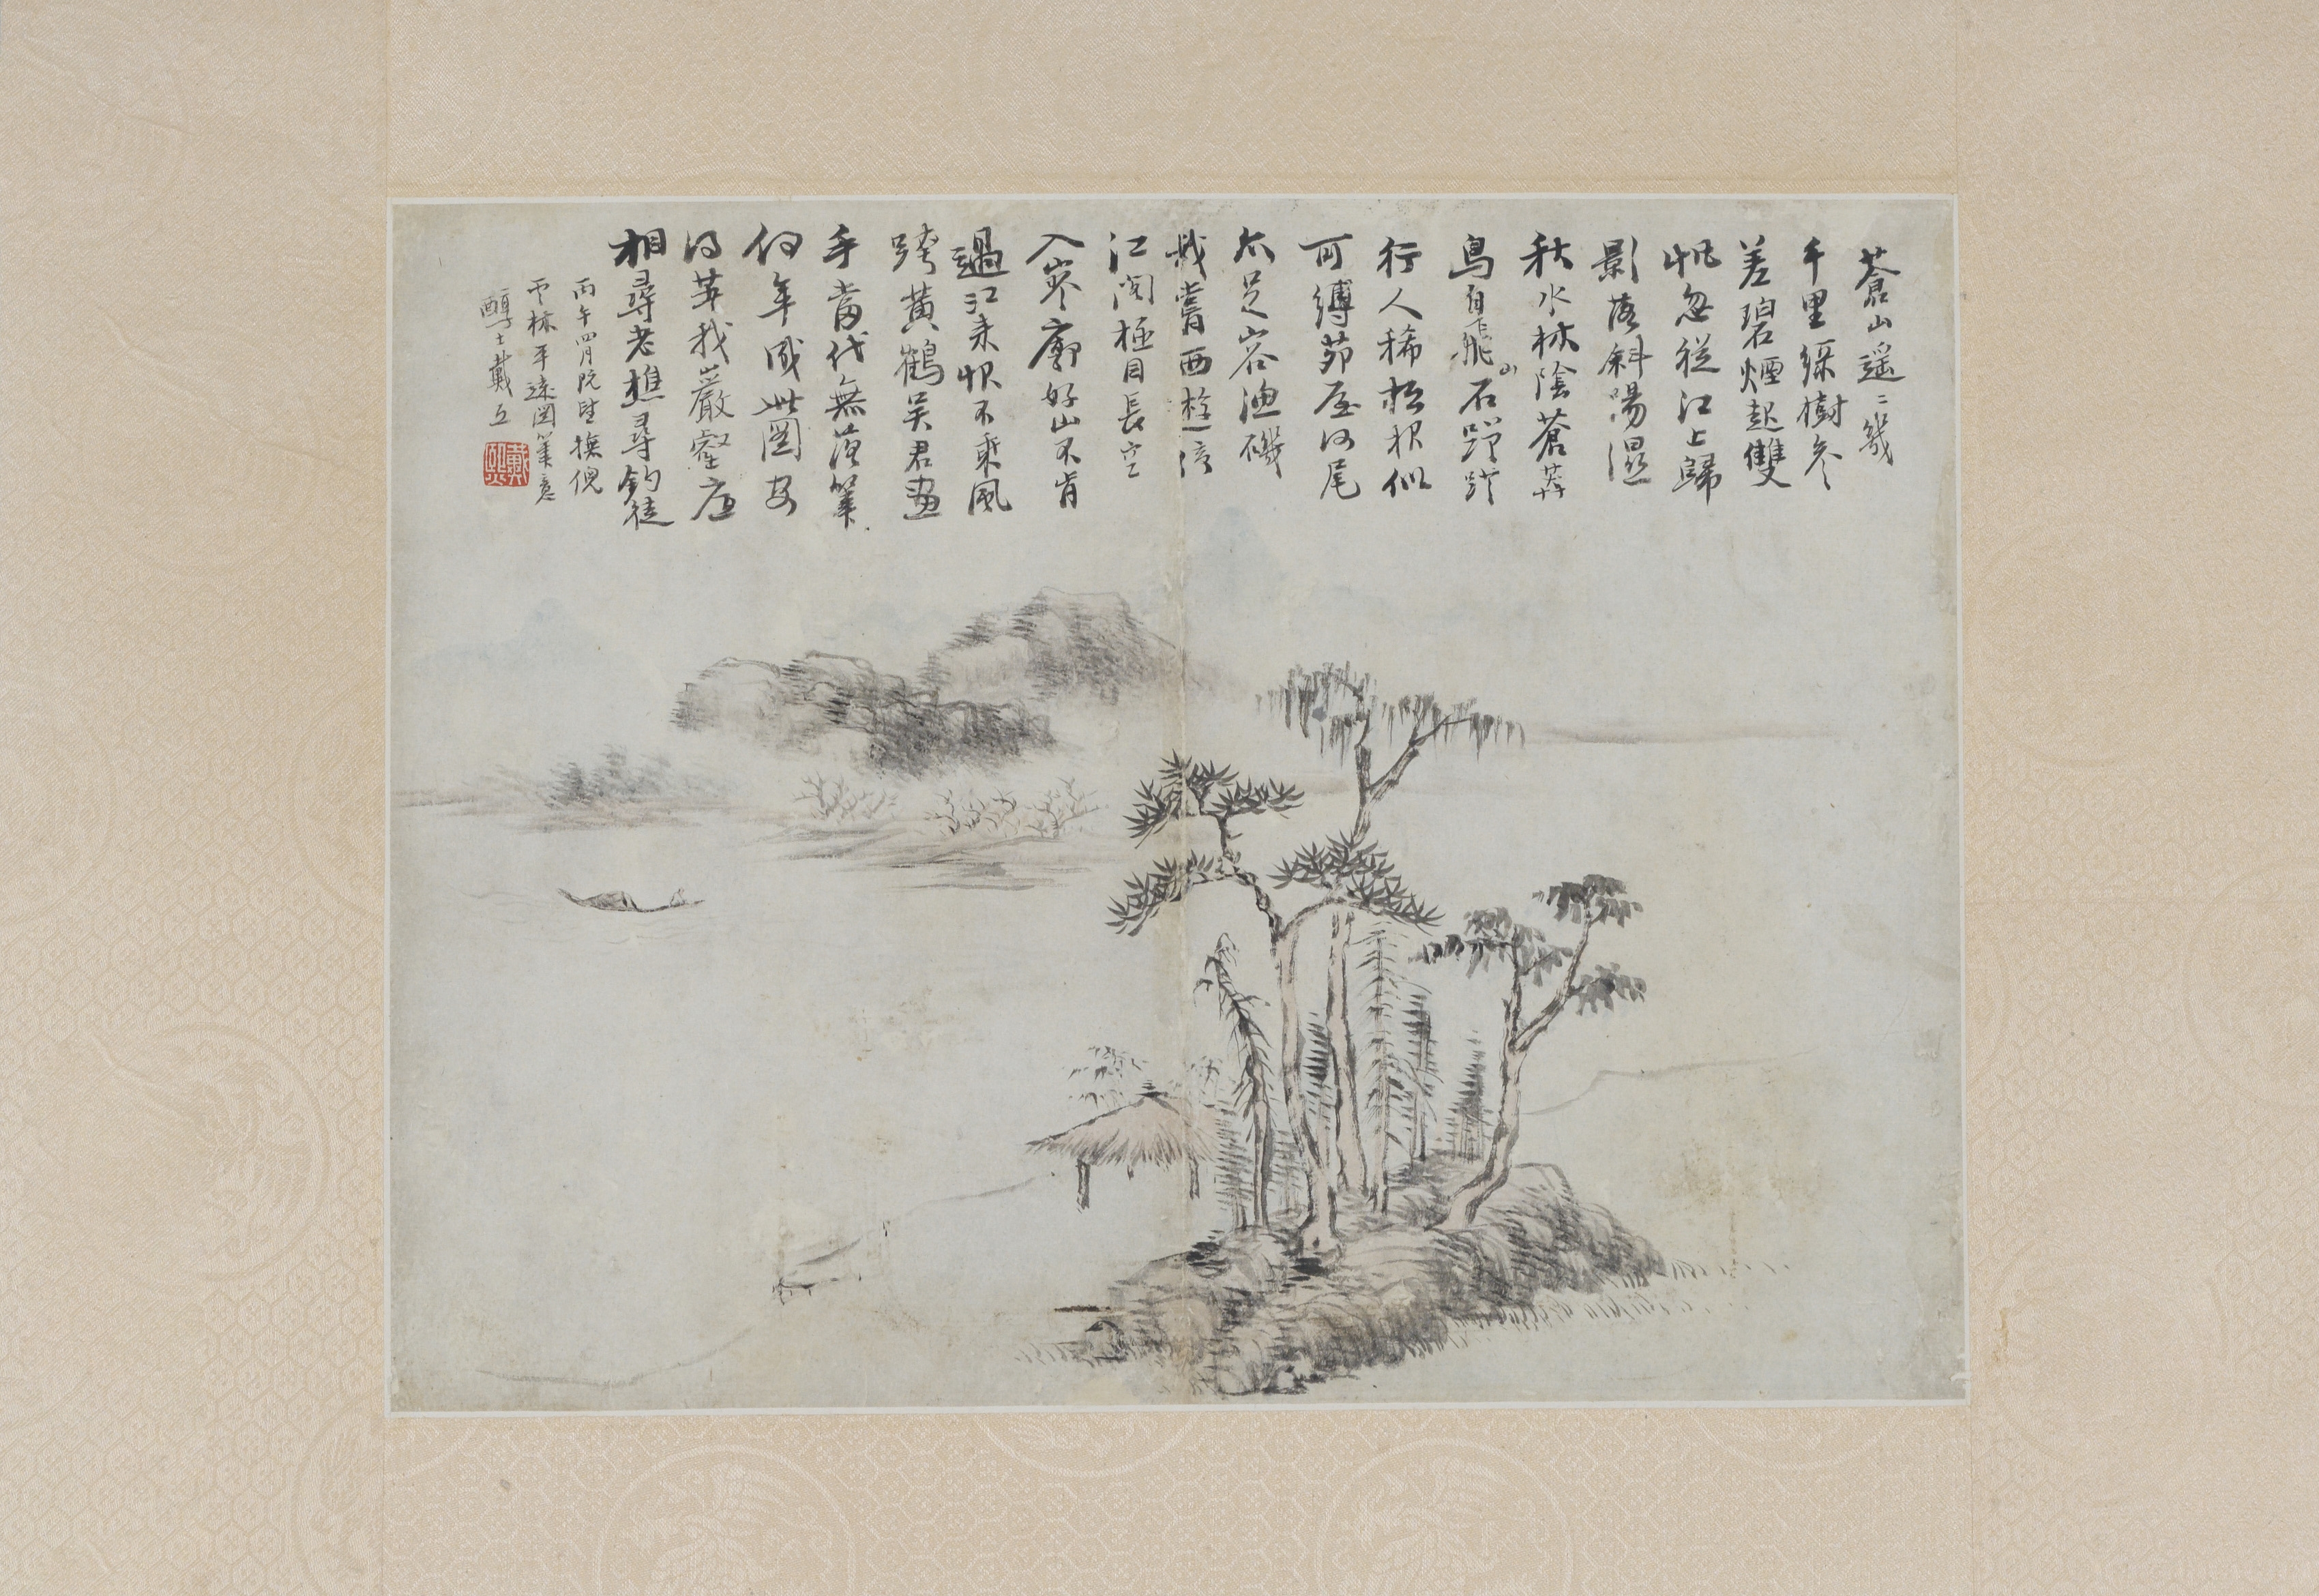 蒼山遥〻幾
千里綠樹參
差碧煙起雙
帆忽從江上歸
影落斜陽濕
秋水林陰蒼莽
鳥自飛山石蹭蹬
行人稀松根似
可縛茆屋沙尾
亦足容漁磯
我嘗西遊倚
江閣極目長空
入寥廓好山不肯
過江来恨不乘風
跨黃鶴吴君畫
手當代無落筆
何年成此圖安
得我巖壑底
相尋老樵尋釣徒
丙午四月既望撫倪
雲林平遠圖筆意
醇士戴熙
戴熙